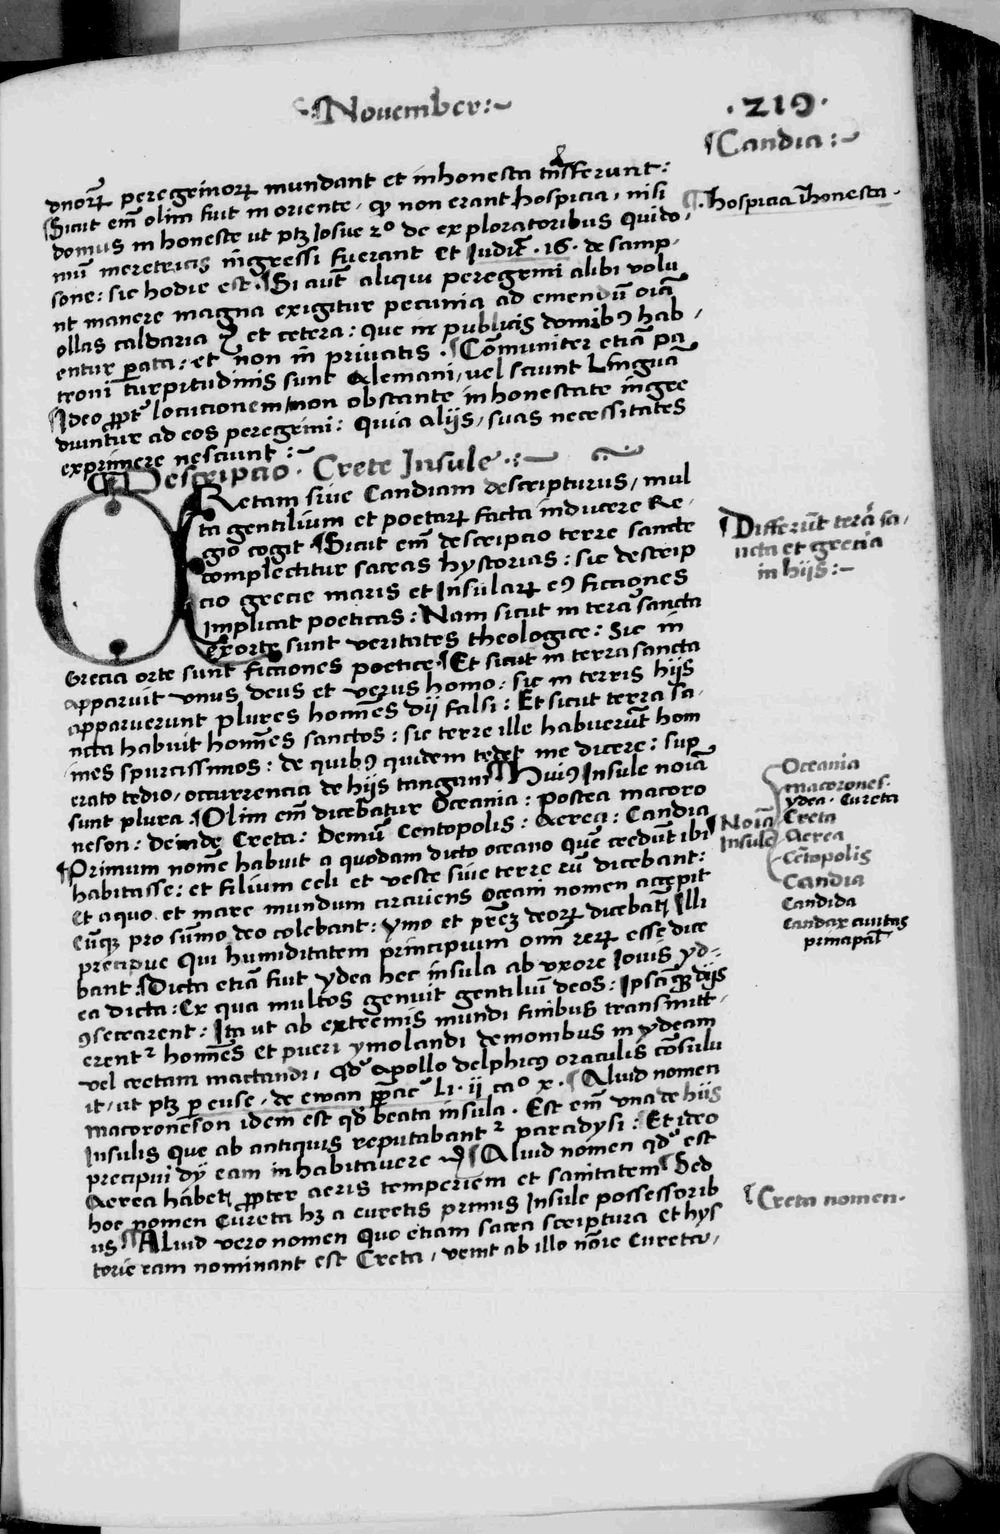 November
.219.
Candia
dnorꝝ peregrinorꝝ mundant et inhonesta
Sicut em̄ olim fuit in oriente, qꝫ non erant hospicia, nisi
domus inhoneste ut ptꝫ Iosue 2º de exploratoribus qui do,
mū meretricis ingressi fuerant et Iudic̄ . 16 . de samp,
sone: sic hodie est . Si aūt aliqui peregrini alibi volu
nt manere magna exigitur pecunia ad emendū oīa
ollas caldaria et cetera: que in publicis domibꝰ hab,
entur pata: et non in priuatis . Cōmuniter etiā pa
troni turpitudinis sunt Alemani, vel sciunt Linguā
Ideo ꝓpt̄ locucionem, non obstante inhonestate ingre
diuntur ad eos peregrini: Quia alijs, suas necessitates
exprimere nesciunt :~
hospicia īhonesta.
Descripcio . Crete Insule .
CRetam siue Candiam descripturus, mul
ta gentilium et poetarꝝ facta inducere Re,
gio cogit Sicut em̄ descripcio terre sancte
complectitur sacras hystorias: sic descrip
cio grecie maris et Insularꝝ eꝰ ficciones
implicat poeticas: Nam sicut in terra sancta
exorte sunt veritates theologice: Sic in
Grecia orte sunt ficciones poetice. Et sicut in terra sancta
apparuit vnus deus et verus homo: sic in terris hijs
apparuerunt plures homēs dij falsi: Et sicut terra sa,
ncta habuit homēs sanctos: sic terre ille habuerūt hom
ines spurcissimos: de quibꝰ quidem tedet me dicere: sup
erato tedio, occurrencia de hijs tangam Huiꝰ Insule noīa
sunt plura . Olim em̄ dicebatur Oceania: postea macoro
neson: deinde Creta: Demū Centopolis: Aerea: Candia
Primum nomē habuit a quodam dicto oceano quē credūt ibi
habitasse: et filium celi et veste siue terre eū dicebant:
et a quo et mare mundum circuiens Oceani nomen accepit
Eūqꝫ pro sūmo deo colebant: ymo et preꝫ deorꝝ dicebāt Illi
precipue Qui humiditatem principium om̄ rerꝝ esse dice
bant. Dicta etiā fuit ydea hec insula ab vxore Iouis yd,
ea dicta: Ex qua multos genuit gentiliū deos: Ipsā dijs
ꝯsecrarent: Ita ut ab extremis mundi finibus transmitt,
erent homēs et pueri ymolandi demonibus in ydeam
vel cretam mactandi, qd̄ apollo delphicꝰ oraculis cōsulu
it, ut ptꝫ p euse. de ewan L̄i. ii caº x. Aliud nomen
macoroneson idem est qd̄ beata insula . Est em̄ vna de hijs
Insulis que ab antiquis reputabant paradysi: Et ideo
precipui dij eam inhabitauere Aliud nomen qd̄ est
Aerea habet ꝓpter aeris temperiem et sanitatem Sed
hoc nomen Cureta hꝫ a curetis primis Insule possessorib
us Aliud vero nomen Quo etiam sacra scriptura et hys
torie eam nominant est Creta, venit ab illo nōīe Cureta,
Differūt terā sa,
ncta et grecia
in hijs :~
Noīa
Insule
Oceania
macorones.
ydea . Cureta
Creta
Aerea
Cētopolis
Candia
Candida
Candax ciuitas
principal̄
Creta nomen.